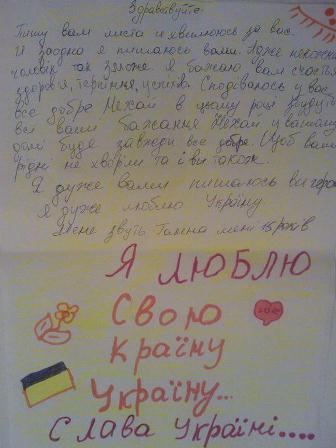 Здравствуйте.
Пишу вам листа и хвилююсь за вас.
И заодно я пишаюсь вами. Адже не кожен
чоловік так зможе. Я бажаю вам счастья
здоров'я, терпіння, успіхів. Сподіваюсь у вас
все добре. Нехай в цьому році збудуться
всі ваши бажання. Нехай у вашому
домі буде завжди все добре. Щоб ваши
рідні не хворіли та і ви також.
Я дуже вами пишаюсь ви герої
Я дуже люблю Україну
Мене звуть Галина мені 15 років
Я люблю
Свою
країну
Україну...
Слава Україні....